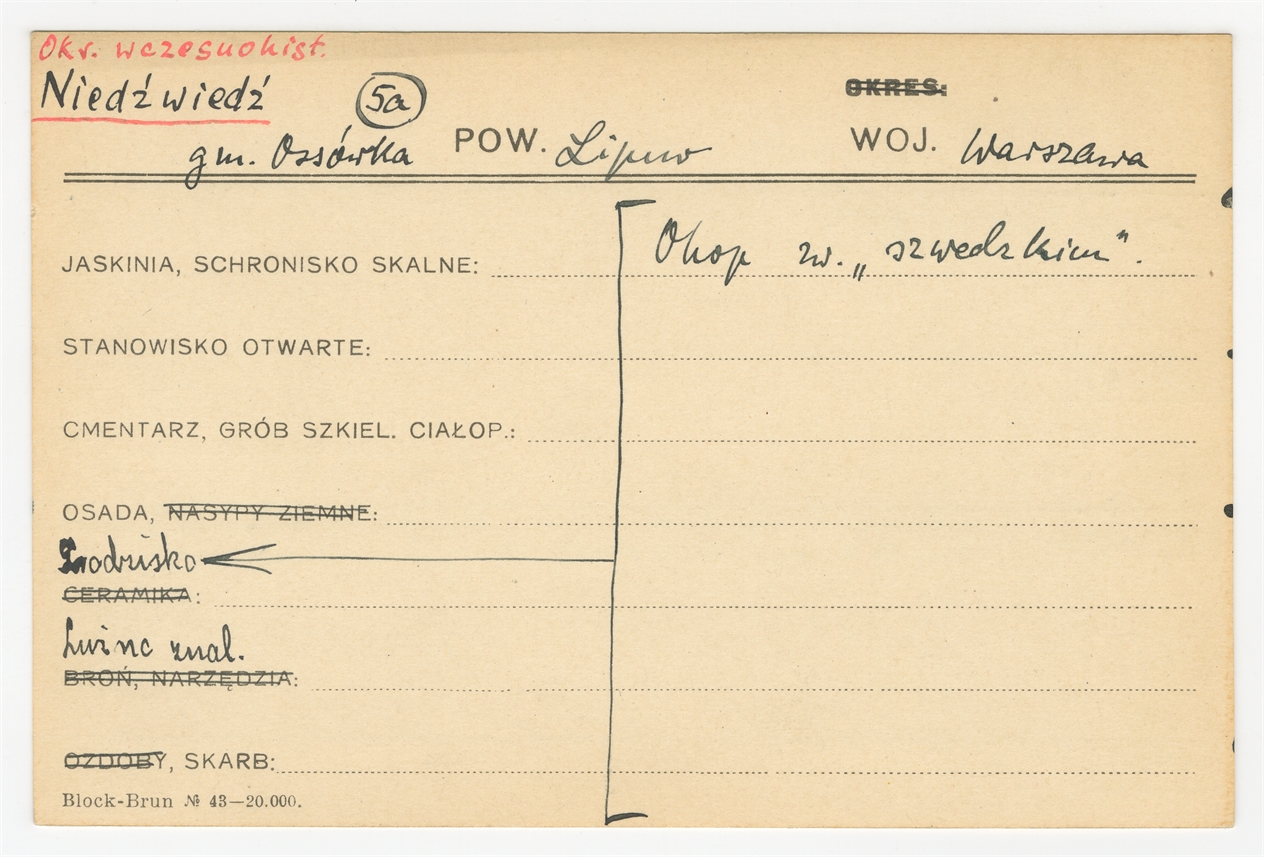 Okr. wczesnohist.
Niedźwiedź 5a OKRES:
gm. Ossówka POW. Lipno WOJ. Warszawa
JASKINIA, SCHRONISKO SKALNE: Okop zw. „szwedzkim”.
STANOWISKO OTWARTE:
CMENTARZ, GRÓB SZKIEL. CIAŁOP.:
OSADA, NASYPY ZIEMNE:
Grodzisko
CERAMIKA:
Luźne znal.
BROŃ, NARZĘDZIA:
OZDOBY, SKARB:
Block-Brun № 43—20.000.